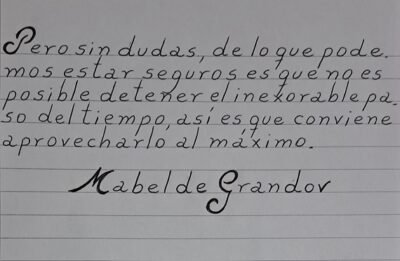 Pero sin dudas, de lo que pode.
mos estar seguros es que no es
posible detener el inexorable pa.
so del tiempo, así es que conviene
aprovecharlo al máximo.
Mabel de Grandov